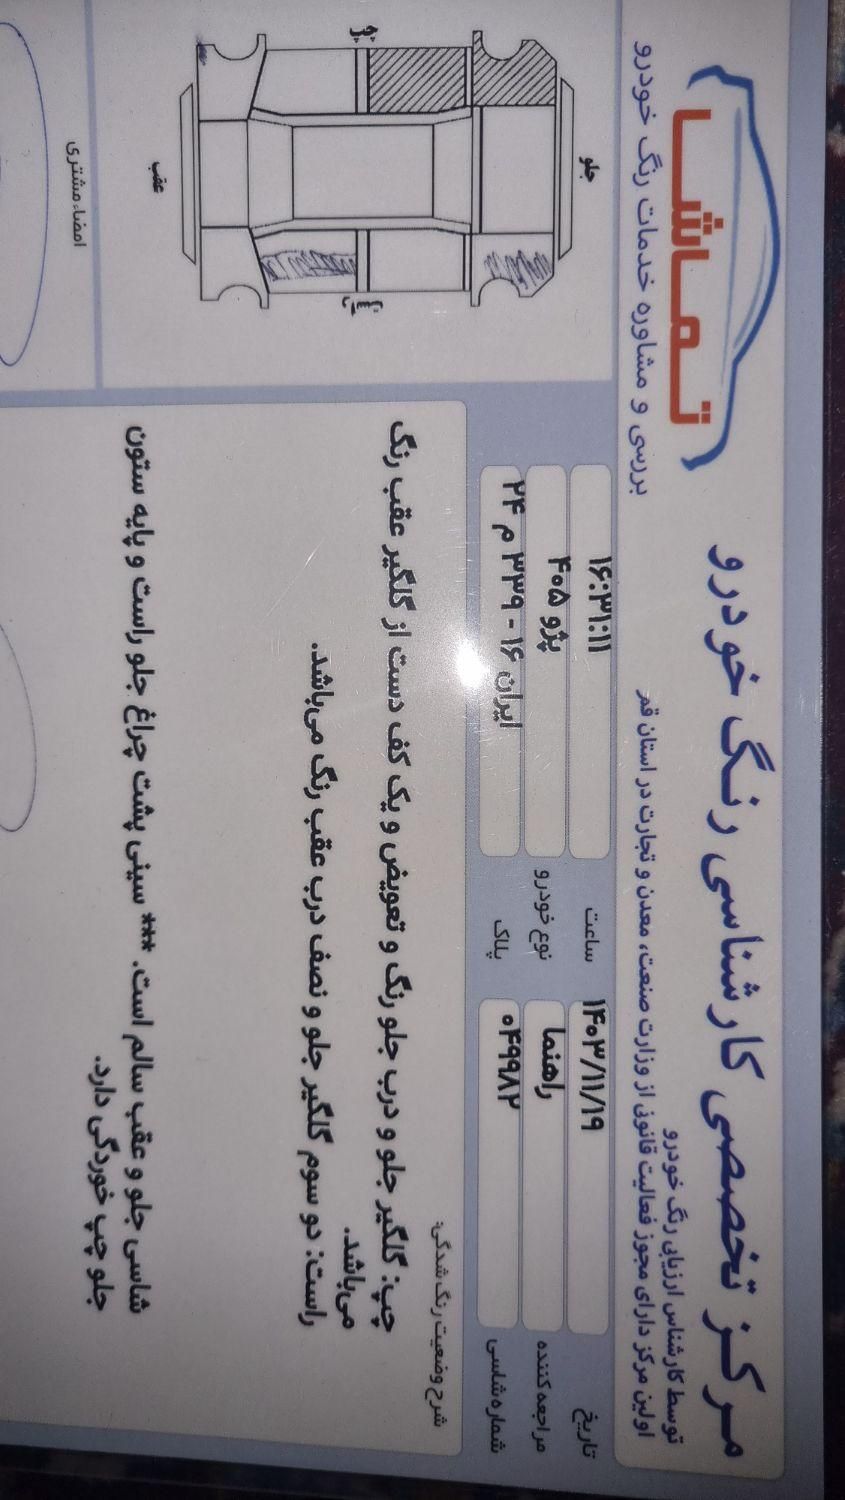 مرکز تخصصی کارشناسی رنگ خودرو
توسط کارشناس ارزیابی رنگ خودرو
اولین مرکز دارای مجوز فعالیت قانونی از وزارت صنعت، معدن و تجارت در استان قم
تماشا
بررسی و مشاوره خدمات رنگ خودرو
تاریخ ۱۴۰۳/۱۱/۱۹ ساعت ۱۶:۳۱:۱۱
مراجعه کننده راهنما نوع خودرو پژو ۴۰۵
شماره شاسی ۰۴۹۹۸۲ پلاک ایران ۱۶ - ۳۳۹ م ۲۴
شرح وضعیت رنگ شدگی:
چپ: گلگیر جلو و درب جلو رنگ و تعویض و یک کف دست از گلگیر عقب رنگ
می‌باشد.
راست: دو سوم گلگیر جلو و نصف درب عقب رنگ می‌باشد.
شاسی جلو و عقب سالم است. *** سینی پشت چراغ جلو راست و پایه ستون
جلو چپ خوردگی دارد.
جلو
چپ
راست
عقب
امضاء مشتری